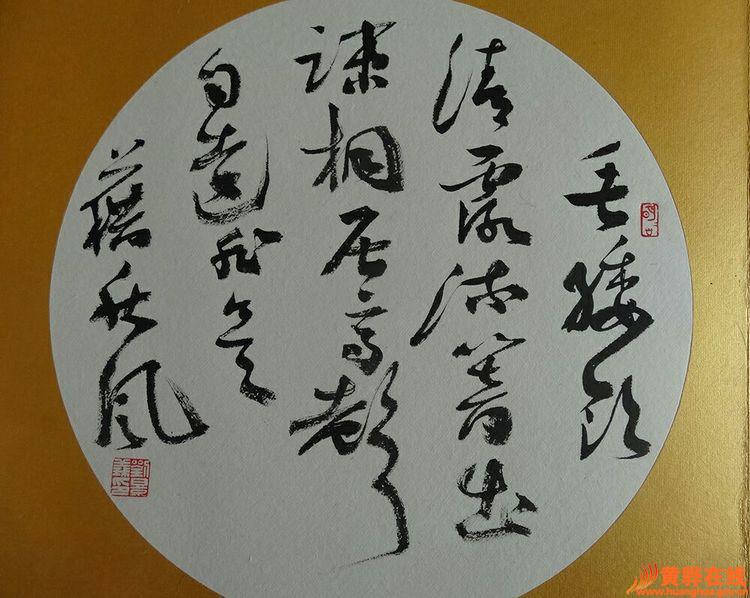 垂緌飲
清露流響出
疎桐居高聲
自遠非是
藉秋風
黄骅在线